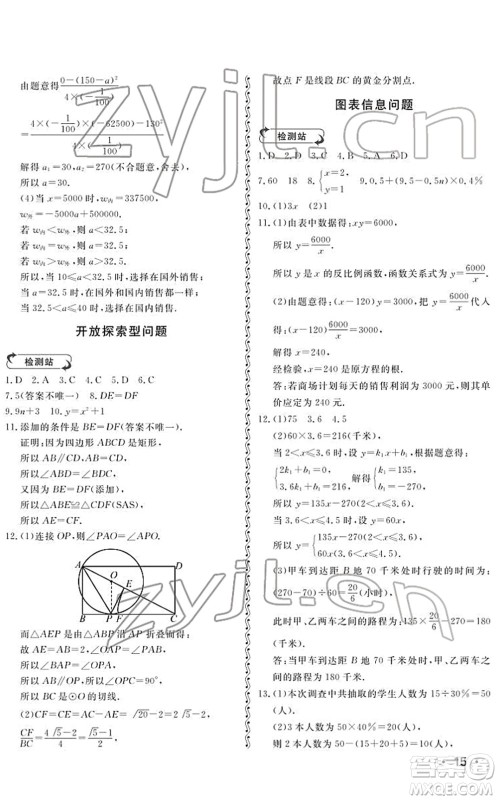 由题意得 0-(150-a)²/4×(-1/100)
=4×(-1/100)×(-62500)-130²/4×(-1/100)
解得 a₁=30, a₂=270(不合题意,舍去),
所以 a=30.
(4)当 x=5000 时, w内=337500,
w外=-5000a+500000.
若 w内<w外,则 a<32.5;
若 w内=w外,则 a=32.5;
若 w内>w外,则 a>32.5.
所以,当 10≤a<32.5 时,选择在国外销售;
当 a=32.5 时,在国外和国内销售都一样;
当 32.5<a≤40 时,选择在国内销售.
开放探索型问题
检测站
1.D 2.A 3.D 4.C 5.C 6.B
7.5(答案不唯一) 8.DE=DF
9.9n+3 10.y=x²+1
11.添加的条件是 BE=DF(答案不唯一).
证明:因为四边形 ABCD 是矩形,
所以 AB∥CD, AB=CD,
所以 ∠ABD=∠BDC.
又因为 BE=DF(添加),
所以 △ABE≌△CDF(SAS),
所以 AE=CF.
12.(1)连接 OP,则 ∠PAO=∠APO.
A D O E B P F C
而 △AEP 是由 △ABP 沿 AP 折叠而得,
故 AE=AB=4, ∠OAP=∠PAB,
所以 ∠BAP=∠OPA,
所以 AB∥OP,所以 ∠OPC=90°,
所以 BC 是 ⊙O 的切线.
(2)CF=CE=AC-AE=√20-2=2√5-2,
CF/BC=(2√5-2)/4=(√5-1)/2,
故点 F 是线段 BC 的黄金分割点.
图表信息问题
检测站
1.D 2.D 3.C 4.B 5.A 6.D
7.60 18 8.{x=2, y=1 9.0.5+(9.5-0.5n)×0.4%
10.(1)3x (2)1
11.(1)由表中数据得: xy=6000,
所以 y=6000/x,
所以 y 是 x 的反比例函数,函数关系式为 y=6000/x.
(2)由题意得:(x-120)y=3000,把 y=6000/x 代
入得:(x-120)·6000/x=3000,解得 x=240.
经检验, x=240 是原方程的根.
答:若商场计划每天的销售利润为 3000 元,则其单
价应定为 240 元.
12.(1)75 3.6 4.5
(2)60×3.6=216(千米),
当 2<x≤3.6 时,设 y=k₁x+b₁,根据题意得:
{2k₁+b₁=0, 3.6k₁+b₁=216, 解得{k₁=135, b₁=-270,
所以 y=135x-270(2<x≤3.6);
当 3.6<x≤4.5 时,设 y=60x,
所以 y={135x-270(2<x≤3.6), 60x(3.6<x≤4.5).
(3)甲车到达距 B 地 70 千米处时行驶的时间为:
(270-70)÷60=20/6(小时),
此时甲、乙两车之间的路程为:135×20/6-270=180
(千米).
答:当甲车到达距 B 地 70 千米处时,甲、乙两车之间
的路程为 180 千米.
13.(1)本次调查中共抽取的学生人数为 15÷30%=50
(人).
(2)3 本人数为 50×40%=20(人),
则 2 本人数为 50-(15+20+5)=10(人),
15